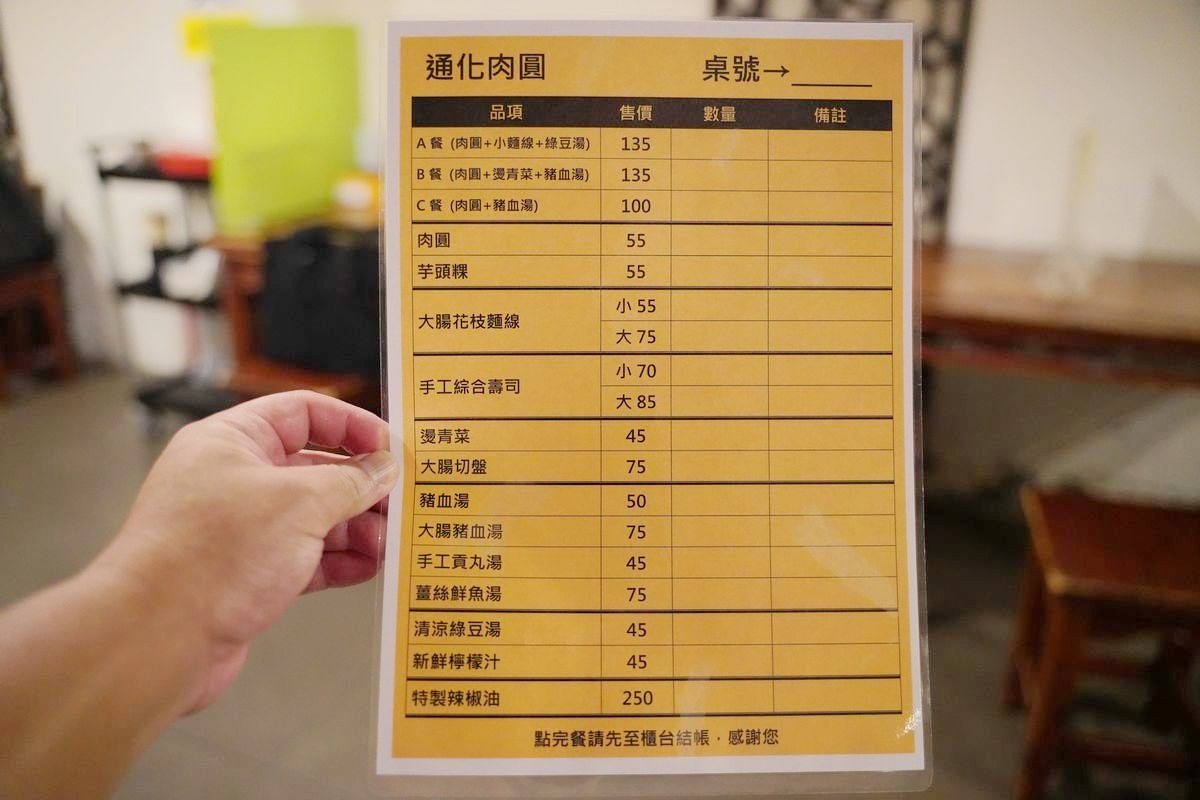 通化肉圓 桌號→
品項 售價 數量 備註
A 餐 (肉圓+小麵線+綠豆湯) 135
B 餐 (肉圓+燙青菜+豬血湯) 135
C 餐 (肉圓+豬血湯) 100
肉圓 55
芋頭粿 55
大腸花枝麵線 小 55
大 75
手工綜合壽司 小 70
大 85
燙青菜 45
大腸切盤 75
豬血湯 50
大腸豬血湯 75
手工貢丸湯 45
薑絲鮮魚湯 75
清涼綠豆湯 45
新鮮檸檬汁 45
特製辣椒油 250
點完餐請先至櫃台結帳，感謝您